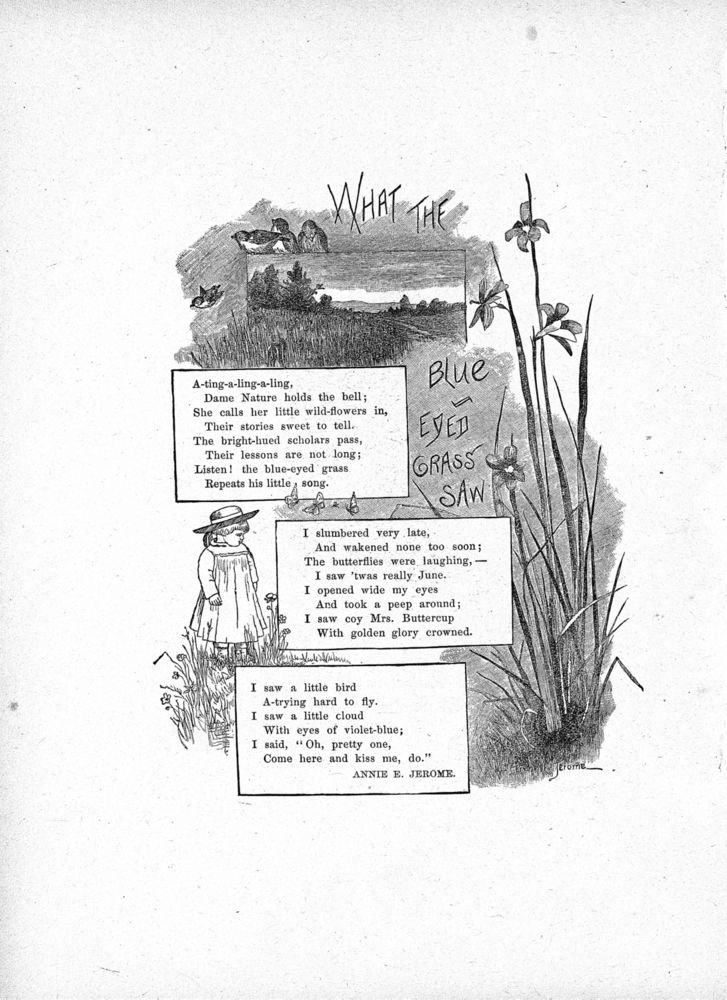 WHAT THE
BLUE
EYED
GRASS
SAW
A-ting-a-ling-a-ling,
Dame Nature holds the bell;
She calls her little wild-flowers in,
Their stories sweet to tell.
The bright-hued scholars pass,
Their lessons are not long;
Listen! the blue-eyed grass
Repeats his little song.
I slumbered very late,
And wakened none too soon;
The butterflies were laughing,—
I saw 'twas really June.
I opened wide my eyes
And took a peep around;
I saw coy Mrs. Buttercup
With golden glory crowned.
I saw a little bird
A-trying hard to fly.
I saw a little cloud
With eyes of violet-blue;
I said, "Oh, pretty one,
Come here and kiss me, do."
ANNIE E. JEROME.
Jerome